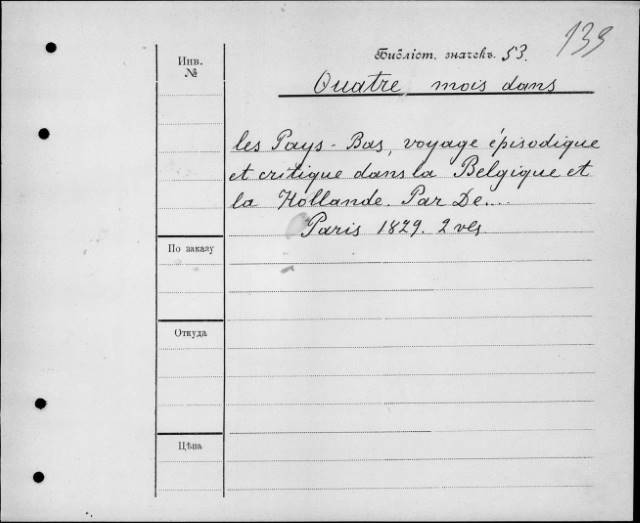 139
Инв.
№
Библіот. значекъ 53.
Quatre mois dans
les Pays-Bas, voyage épisodique
et critique dans la Belgique et
la Hollande. Par De....
Paris 1829. 2 vls
По заказу
Откуда
Цѣна